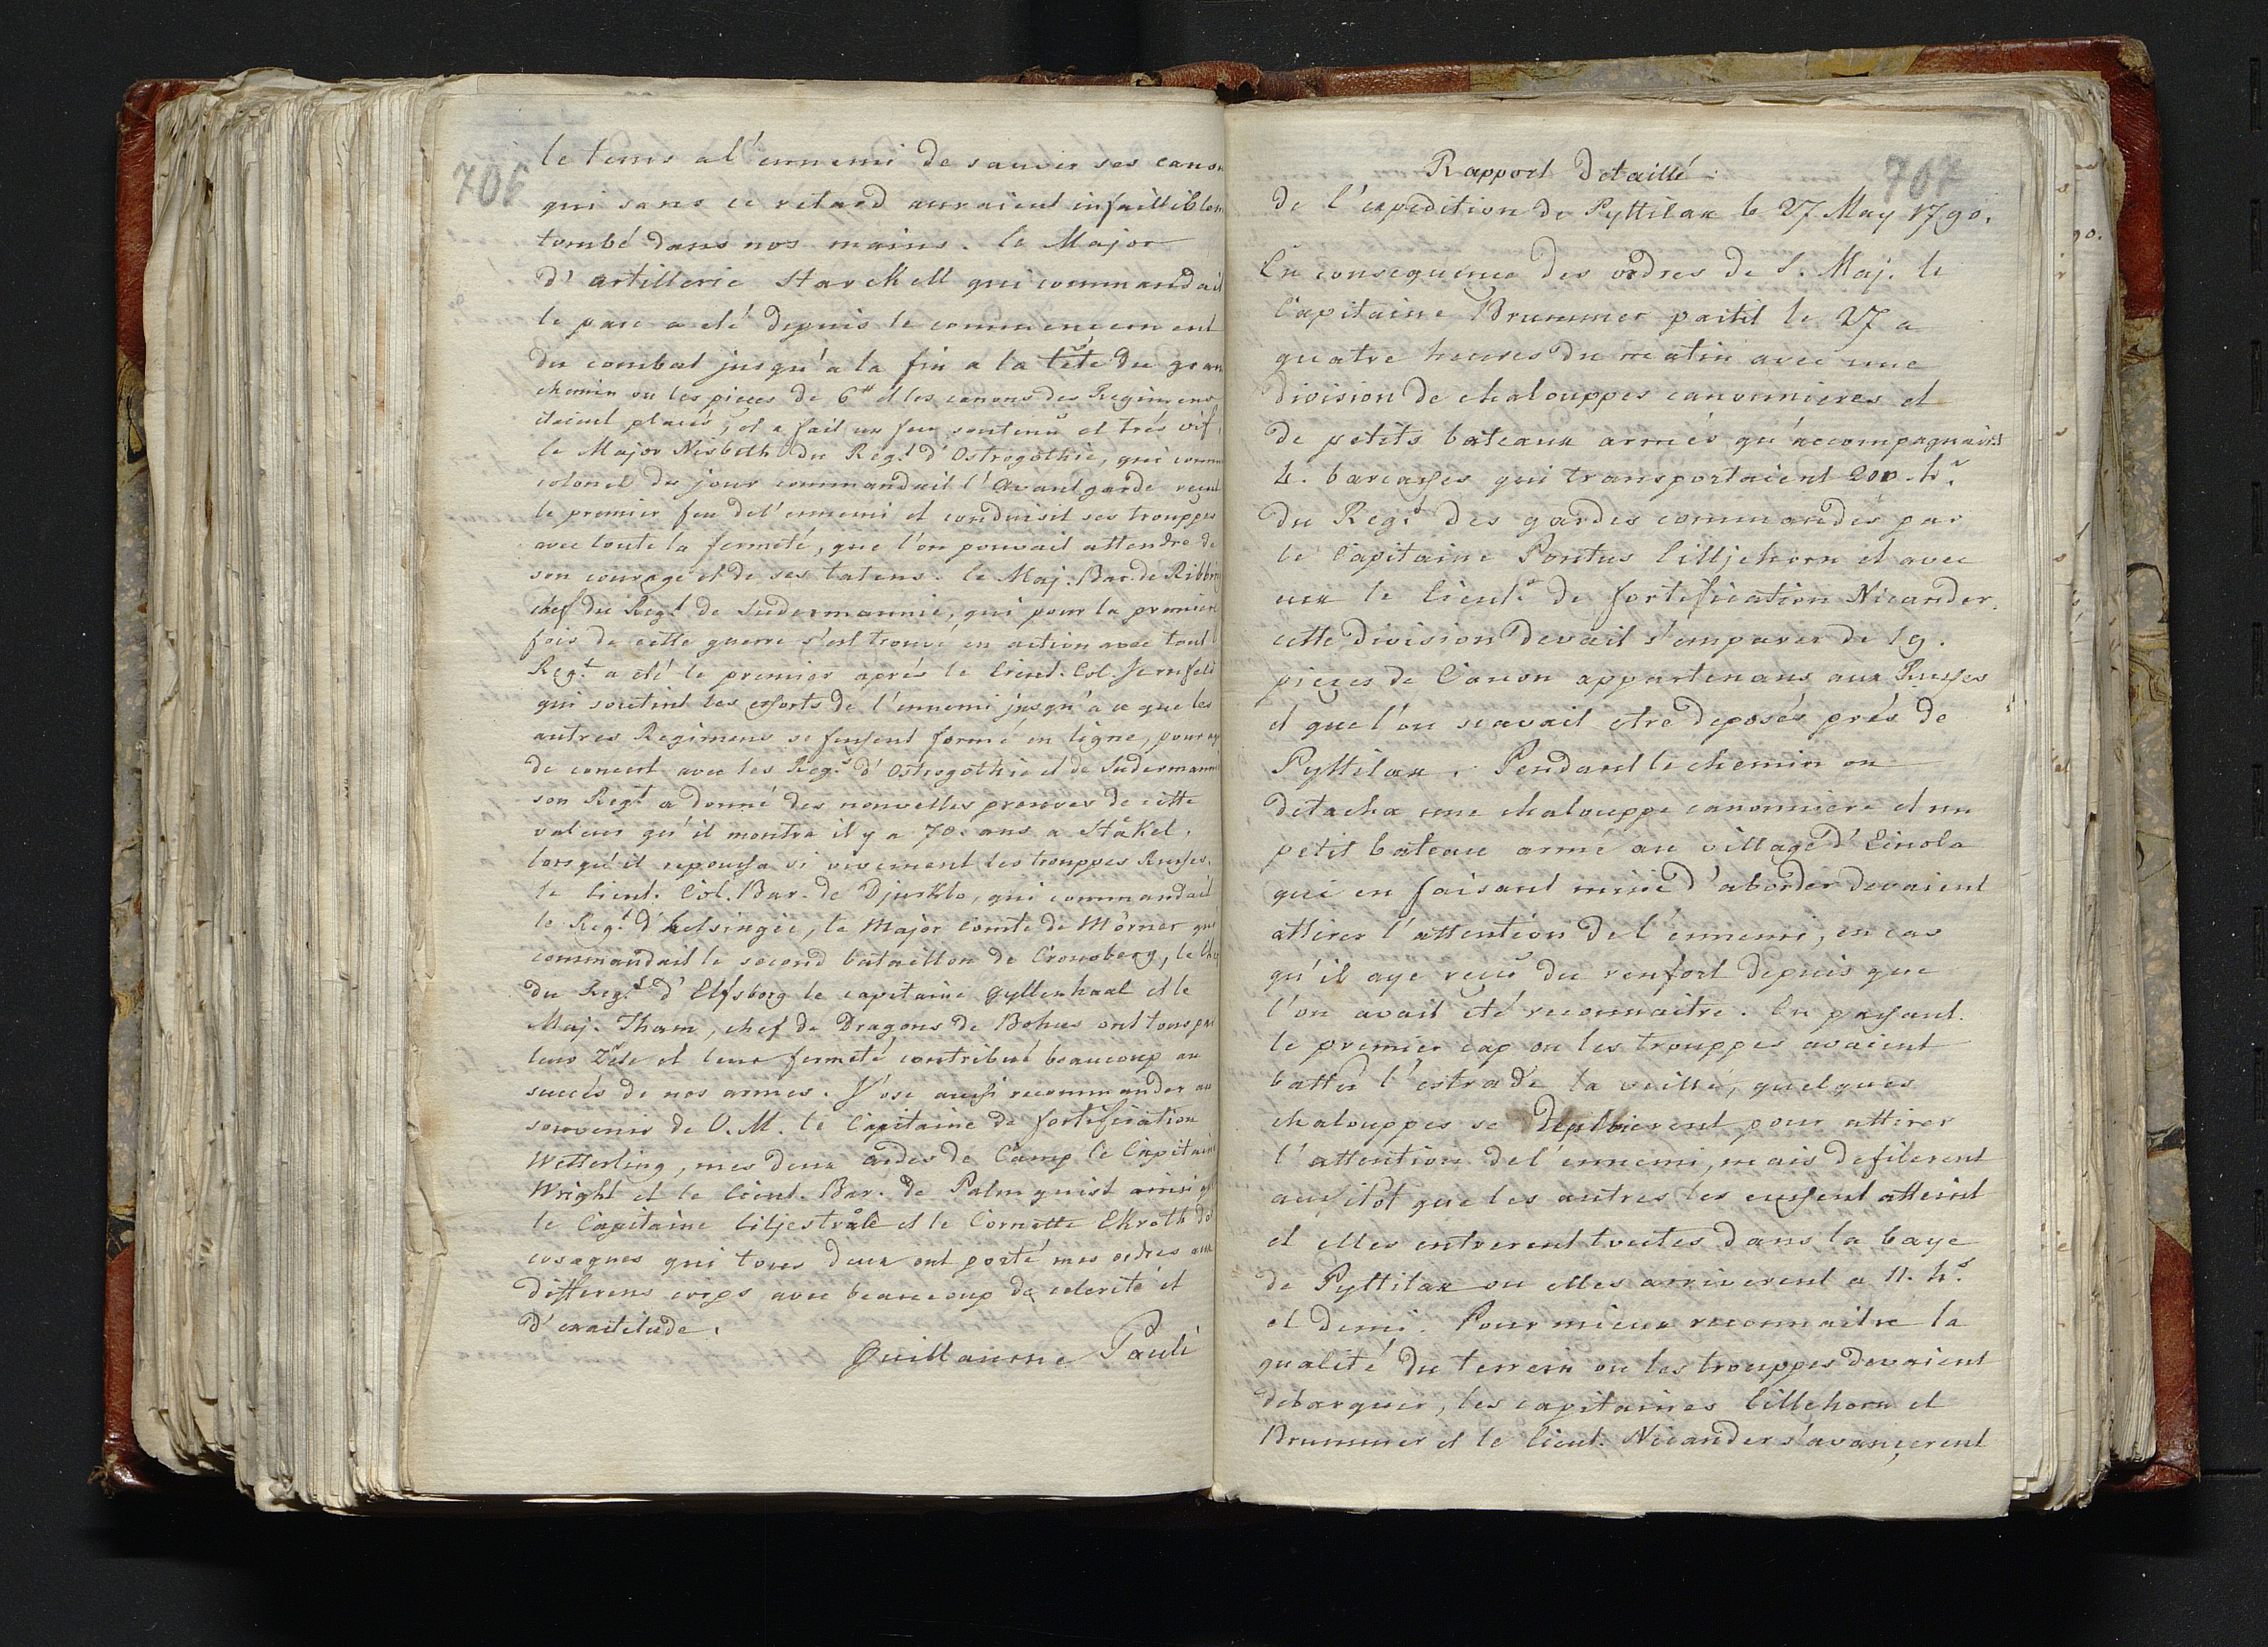 706
le tems a l'ennemi de sauver ses canon
qui sans ce retard auraient infailliblem
tombé dans nos mains. le Major
d'artillerie Starckell qui commandait
le parc a eté depuis le commencement
du combat jusqu'a la fin a la tête du gran
chemin ou les pieces de 6 et les canons des Regimens
etaient placés, et a fait un feu soutenu et trés vif.
le Major Nisbeth du Regt d'Ostrogothie, qui comm
colonel du jour commandait l'Avantgarde reçut
le premier feu de l'ennemi et conduisit ses trouppes
avec toute la fermeté, que l'on pouvait attendre de
son courage et de ses talens. le Maj. Bar. de Ribbing
chef du Regt de Sudermannie, qui pour la premiere
fois de cette guerre s'est trouvé en action avec tout l
Regt a eté le premier aprés le Lieut. Col. Jernfeld
qui soutint les efforts de l'ennemi jusqu'a ce que les
autres Regimens se fussent formé en ligne, pour ag
de concert avec les Regs d'Ostrogothie et de Sudermanni
son Regt a donné des nouvelles preuves de cette
valeur qu'il montra il y a 70. ans a Stäkel,
lorsqu'il repoussa si vivement les trouppes Russes.
le Lieut. Col. Bar. de Djurklo, qui commandait
le Regt d'helsingie, le Major Comte de Mörner qui
commandait le second bataillon de Cronoberg, le Chef
du Regt d'Elfsborg le capitaine Gyllenhaal et le
Maj. Tham, chef de Dragons de Bohus ont tous par
leur Zele et leur fermeté contribué beaucoup au
succés de nos armes. J'ose aussi recommander au
souvenir de V. M. le Capitaine de fortification
Wetterling, mes deux aides de Camp le Capitaine
Wright et le Lieut. Bar. de Palmquist ainsi q
le Capitaine Liljestråle et le Cornette Ekroth de
cosaques qui tous deux ont porté mes ordres aux
differens corps avec beaucoup de celerité et
d'exactitude.
Guillaume Pauli
707
Rapport detaillé
de l'expedition de Pyttilax le 27 May 1790.
En consequence des ordres de S. Maj. le
Capitaine Brummer partit le 27 a
quatre heures du matin avec une
division de chalouppes canonnieres et
de petits bateaux armés qu'accompagnaient
4. barcasses qui transportaient 200. h.
du Regt des gardes commandés par
le Capitaine Pontus Lilljehorn et avec
eux le Lieut. de fortification Nicander.
cette division devait s'emparer de 19.
pieçes de Canon appartenans aux Russes
et que l'on scavait etre deposés prés de
Pyttilax. Pendant le chemin on
detacha une chalouppe canonniere et un
petit bateau armé au village d'Einola
qui en faisant mine d'aborder devaient
attirer l'attention de l'ennemi, en cas
qu'il aye reçu du renfort depuis que
l'on avait eté reconnaitre. En passant
le premier cap ou les trouppes avaient
battu l'estrade la veille, quelques
chalouppes se deploierent pour attirer
l'attention de l'ennemi, mais defilerent
aussitot que les autres les eussent atteint
et elles entrerent toutes dans la baye
de Pyttilax ou elles arriverent a 11. hs
et demi. Pour mieux reconnaitre la
qualité du terrein ou les trouppes devaient
debarquer, les capitaines Lillehorn et
Brummer et le Lieut. Nicander s'avançerent